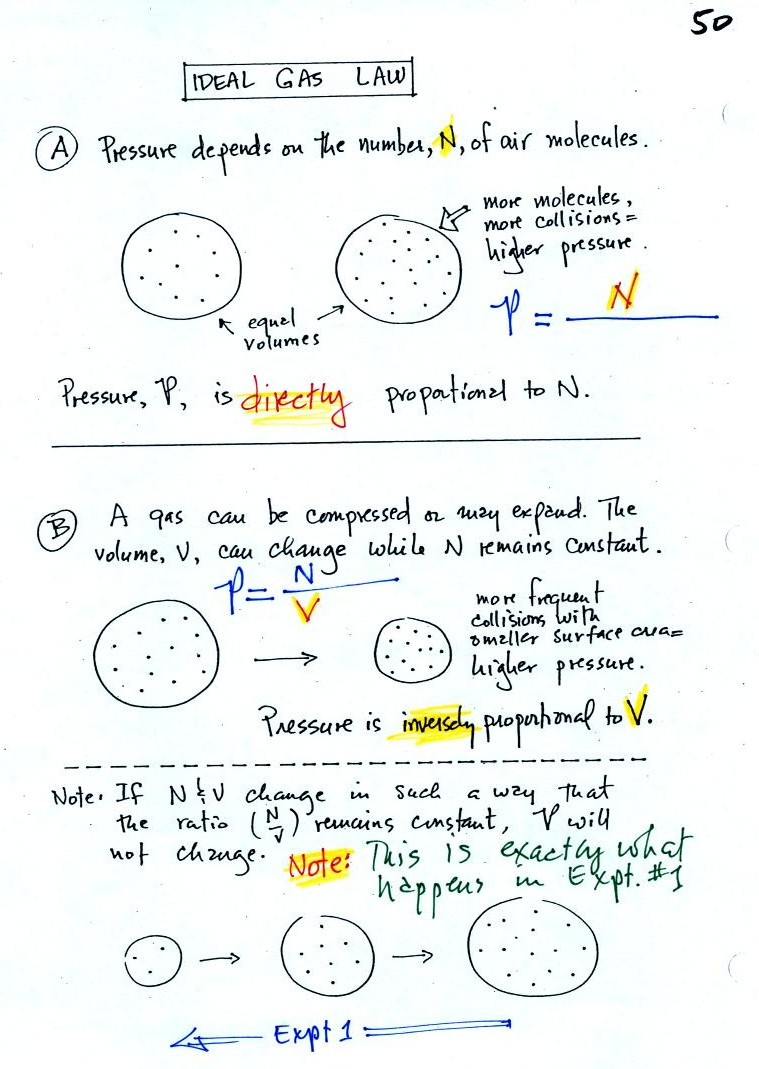 50
IDEAL GAS LAW
A Pressure depends on the number, N, of air molecules.
more molecules,
more collisions =
higher pressure.
P = N
equal
volumes
Pressure, P, is directly proportional to N.
B A gas can be compressed or may expand. The
volume, V, can change while N remains constant.
P = N
V
more frequent
collisions with
smaller surface area =
higher pressure.
Pressure is inversely proportional to V.
Note: If N & V change in such a way that
the ratio (N/V) remains constant, P will
not change. Note: This is exactly what
happens in Expt. #1
Expt 1